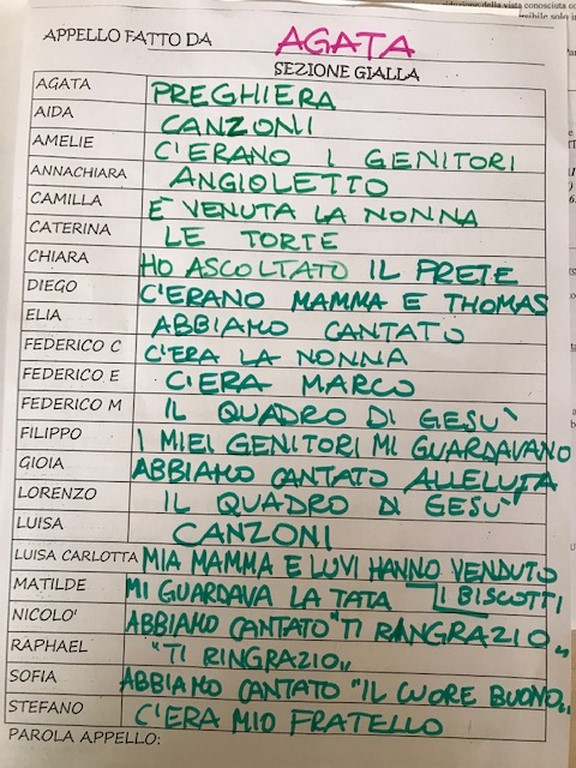 APPELLO FATTO DA AGATA
SEZIONE GIALLA
AGATA PREGHIERA
AIDA CANZONI
AMELIE C'ERANO I GENITORI
ANNACHIARA ANGIOLETTO
CAMILLA E' VENUTA LA NONNA
CATERINA LE TORTE
CHIARA HO ASCOLTATO IL PRETE
DIEGO C'ERANO MAMMA E THOMAS
ELIA ABBIAMO CANTATO
FEDERICO C C'ERA LA NONNA
FEDERICO E C'ERA MARCO
FEDERICO M IL QUADRO DI GESU'
FILIPPO I MIEI GENITORI MI GUARDAVANO
GIOIA ABBIAMO CANTATO ALLELUIA
LORENZO IL QUADRO DI GESU'
LUISA CANZONI
LUISA CARLOTTA MIA MAMMA E LUVI HANNO VENDUTO
I BISCOTTI
MATILDE MI GUARDAVA LA TATA
NICOLO' ABBIAMO CANTATO "TI RINGRAZIO"
RAPHAEL "TI RINGRAZIO"
SOFIA ABBIAMO CANTATO "IL CUORE BUONO"
STEFANO C'ERA MIO FRATELLO
PAROLA APPELLO: